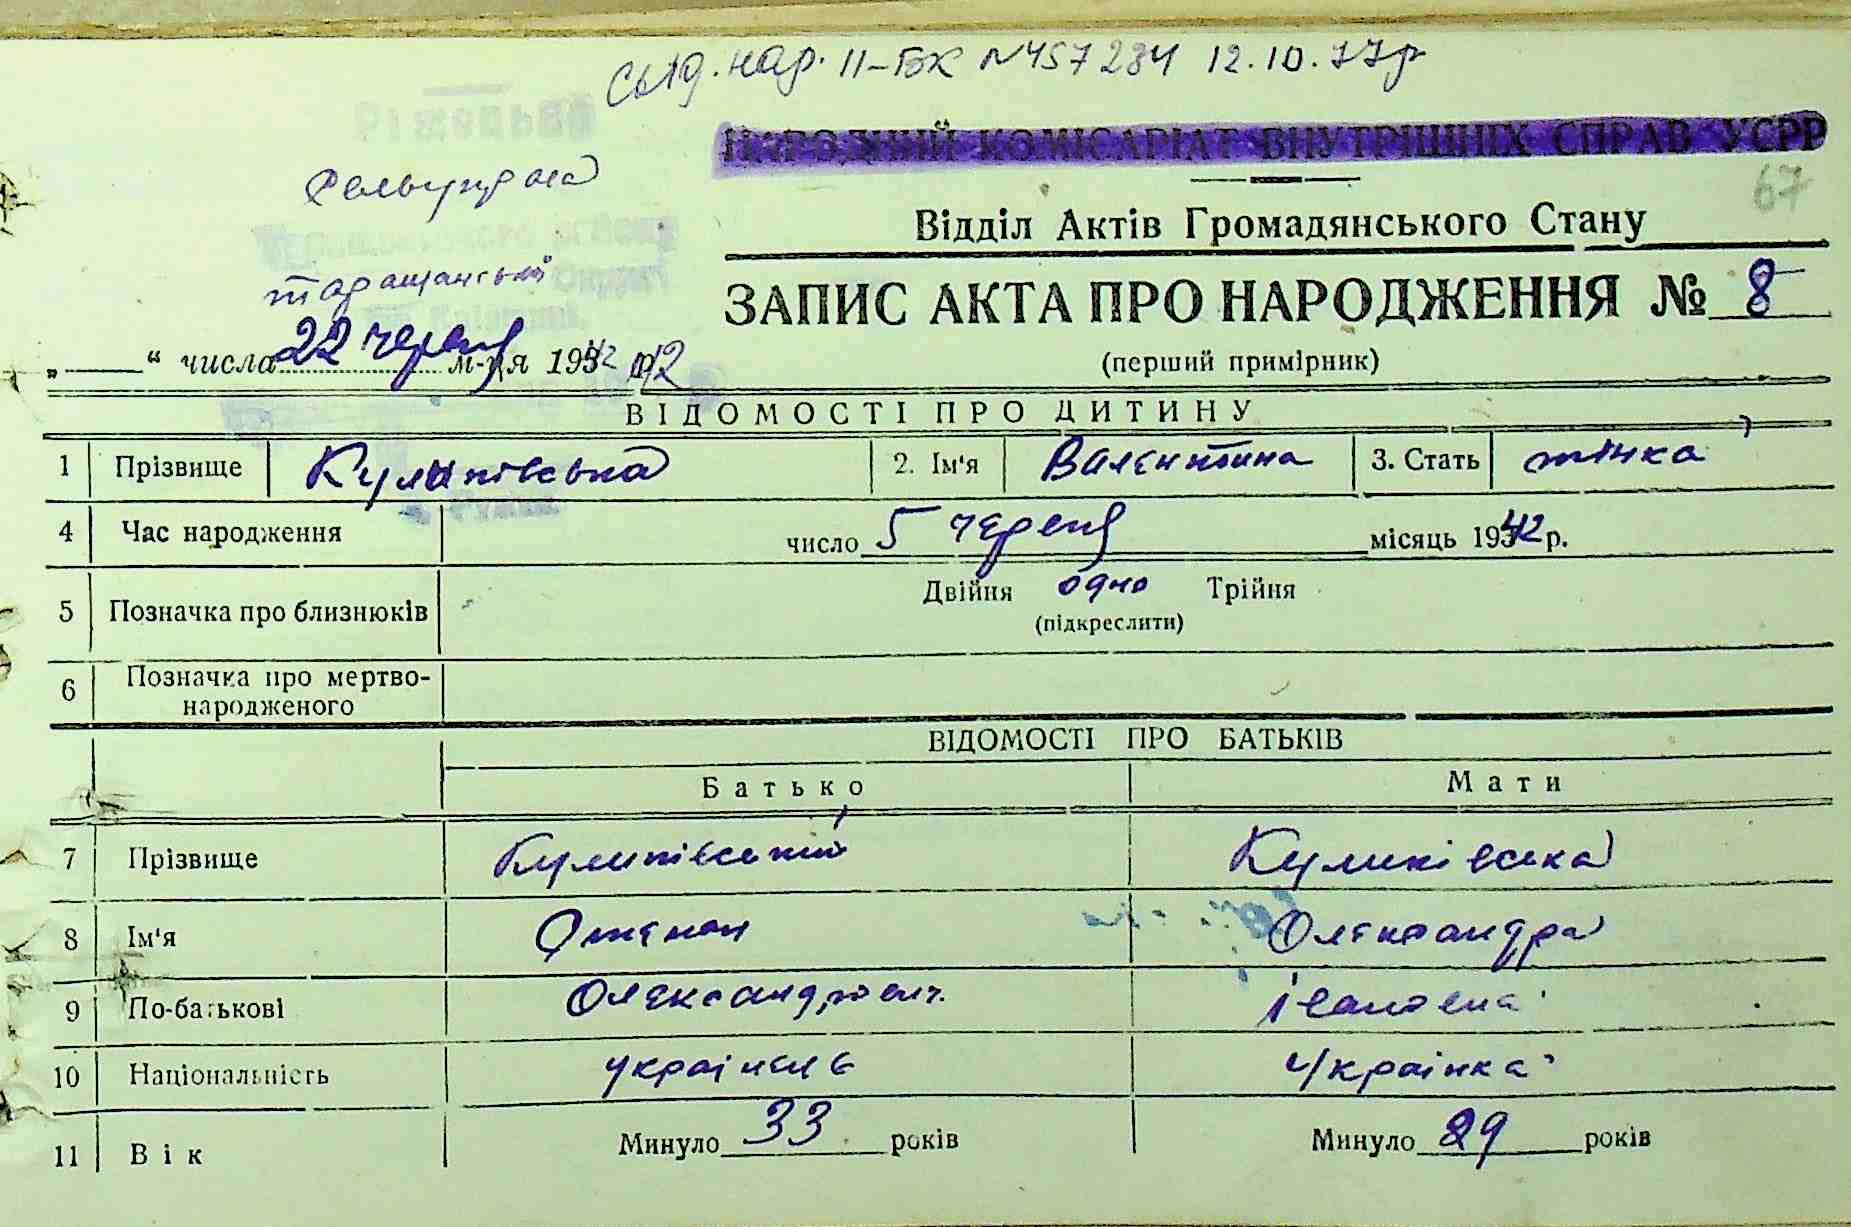 нар. II-БК №457284 12.10.77р
НАРОДНИЙ КОМІСАРІАТ ВНУТРІШНІХ СПРАВ УСРР
67
Відділ Актів Громадянського Стану
таращанський
ЗАПИС АКТА ПРО НАРОДЖЕННЯ № 8
„ “ числа 22 червня м-ця 1942 р. 42
(перший примірник)
ВІДОМОСТІ ПРО ДИТИНУ
1 Прізвище Куликівська 2. Ім'я Валентина 3. Стать жінка
4 Час народження число 5 червня місяць 1942 р.
5 Позначка про близнюків Двійня одно Трійня
(підкреслити)
6 Позначка про мертво-
народженого
ВІДОМОСТІ ПРО БАТЬКІВ
Батько Мати
7 Прізвище Куликівський Куликівська
8 Ім'я Степан Олександра
9 По-батькові Олександрович. Івановна
10 Національність українець українка
11 Вік Минуло 33 років Минуло 29 років